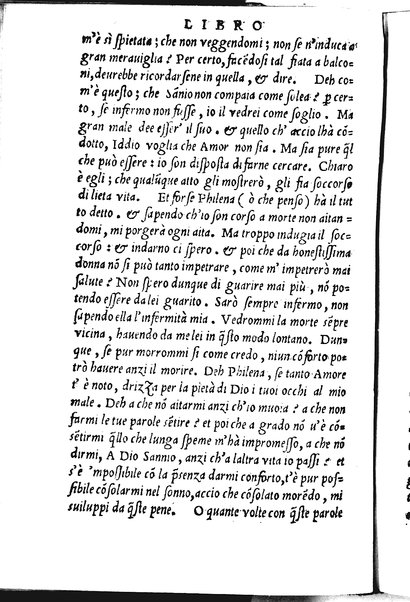 LIBRO
m'è sì spietata; che non veggendomi; non se n'induca a
gran meraviglia? Per certo, facēdosi tal fiata a balco-
ni, deurebbe ricordarsene in quella, & dire. Deh co-
m'è questo; che Sānio non compaia come solea? p̱ cer-
to, se infermo non fusse, io il vedrei come soglio. Ma
gran male dee esser' il suo. & quello ch' accio lhà cō-
dotto, Iddio voglia che Amor non sia. Ma sia pure q̄l
che può essere: io son disposta di farne cercare. Chiaro
è egli; che qualūque atto gli mostrerò, gli fia soccorso
di lieta vita. Et forse Philena (ò che penso) hà il tut
to detto. & sapendo ch'io son corso a morte non aitan=
domi, mi porgerà ogni aita. Ma troppo indugia il soc-
corso: & indarno ci spero. & poi che da honestissima
donna nō si può tanto impetrare, come m' impetrerò mai
salute? Non spero dunque di guarire mai più, nō po-
tendo essere da lei guarito. Sarò sempre infermo, non
sapendo ella l'infermità mia. Vedrommi la morte sēpre
vicina, hauendo da me lei in q̄sto modo lontano. Dun-
que, se pur morrommi sì come credo, niun cōforto po-
trò hauere anzi il morire. Deh Philena, se tanto Amore
t' è noto, drizza per la pietà di Dio i tuoi occhi al mio
male. Deh a che nō aitarmi anzi ch'io muoia? a che non
farmi le tue parole sētire? et poi che a grado nō u'è cō-
sētirmi q̄llo che lunga speme m'hà impromesso, a che nō
dirmi, A Dio Sannio, anzi ch'a laltra vita io passi? et
s'è 'mpossibile cō la p̄senza darmi conforto, t'è pur pos-
sibile cōsolarmi nel sonno, accio che cōsolato morēdo, mi
suiluppi da q̄ste pene. O quante volte con q̄ste parole